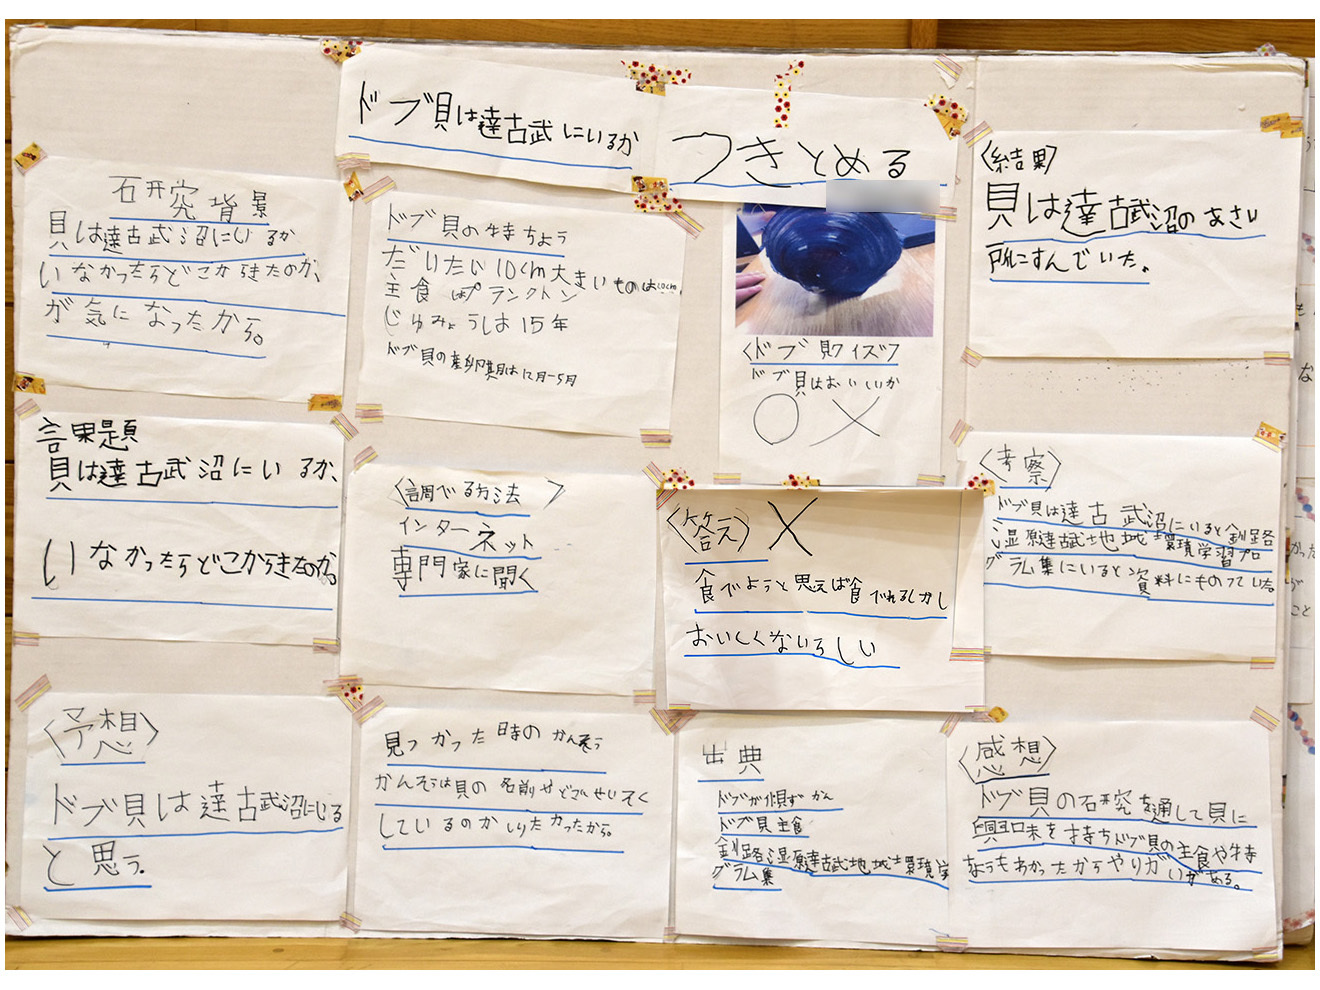 ドブ貝は達古武にいるか
つきとめる
研究背景
貝は達古武沼にいるか
いなかったらどこからきたのか、
が気になったから。
課題
貝は達古武沼にいるか、
いなかったらどこからきたのか。
〈予想〉
ドブ貝は達古武沼にいる
と思う。
ドブ貝の特ちょう
だいたい10cm大きいものは20cm
主食はプランクトン
じゅみょうは15年
ドブ貝の産卵期は12月~5月
〈調べる方法〉
インターネット
専門家に聞く
見つかった時のかんそう
かんそうは貝の名前やどこにせいそく
しているのかしりたかったから。
〈ドブ貝クイズ〉
ドブ貝はおいしいか
○ ×
〈答え〉 ×
食べようと思えば食べれるしかし
おいしくないらしい
出典
ドブがい
ドブ貝主食
釧路湿原達古武地域環境学
グラム集
〈結果〉
貝は達古武沼のあさい
所にすんでいた。
〈考察〉
ドブ貝は達古武沼にいると釧路
湿原達古武地域環境学習プロ
グラム集にいると資料にものっていた。
〈感想〉
ドブ貝の研究を通して貝に
興味を持ちドブ貝の主食や特
ちょうもわかったからやりがいがある。